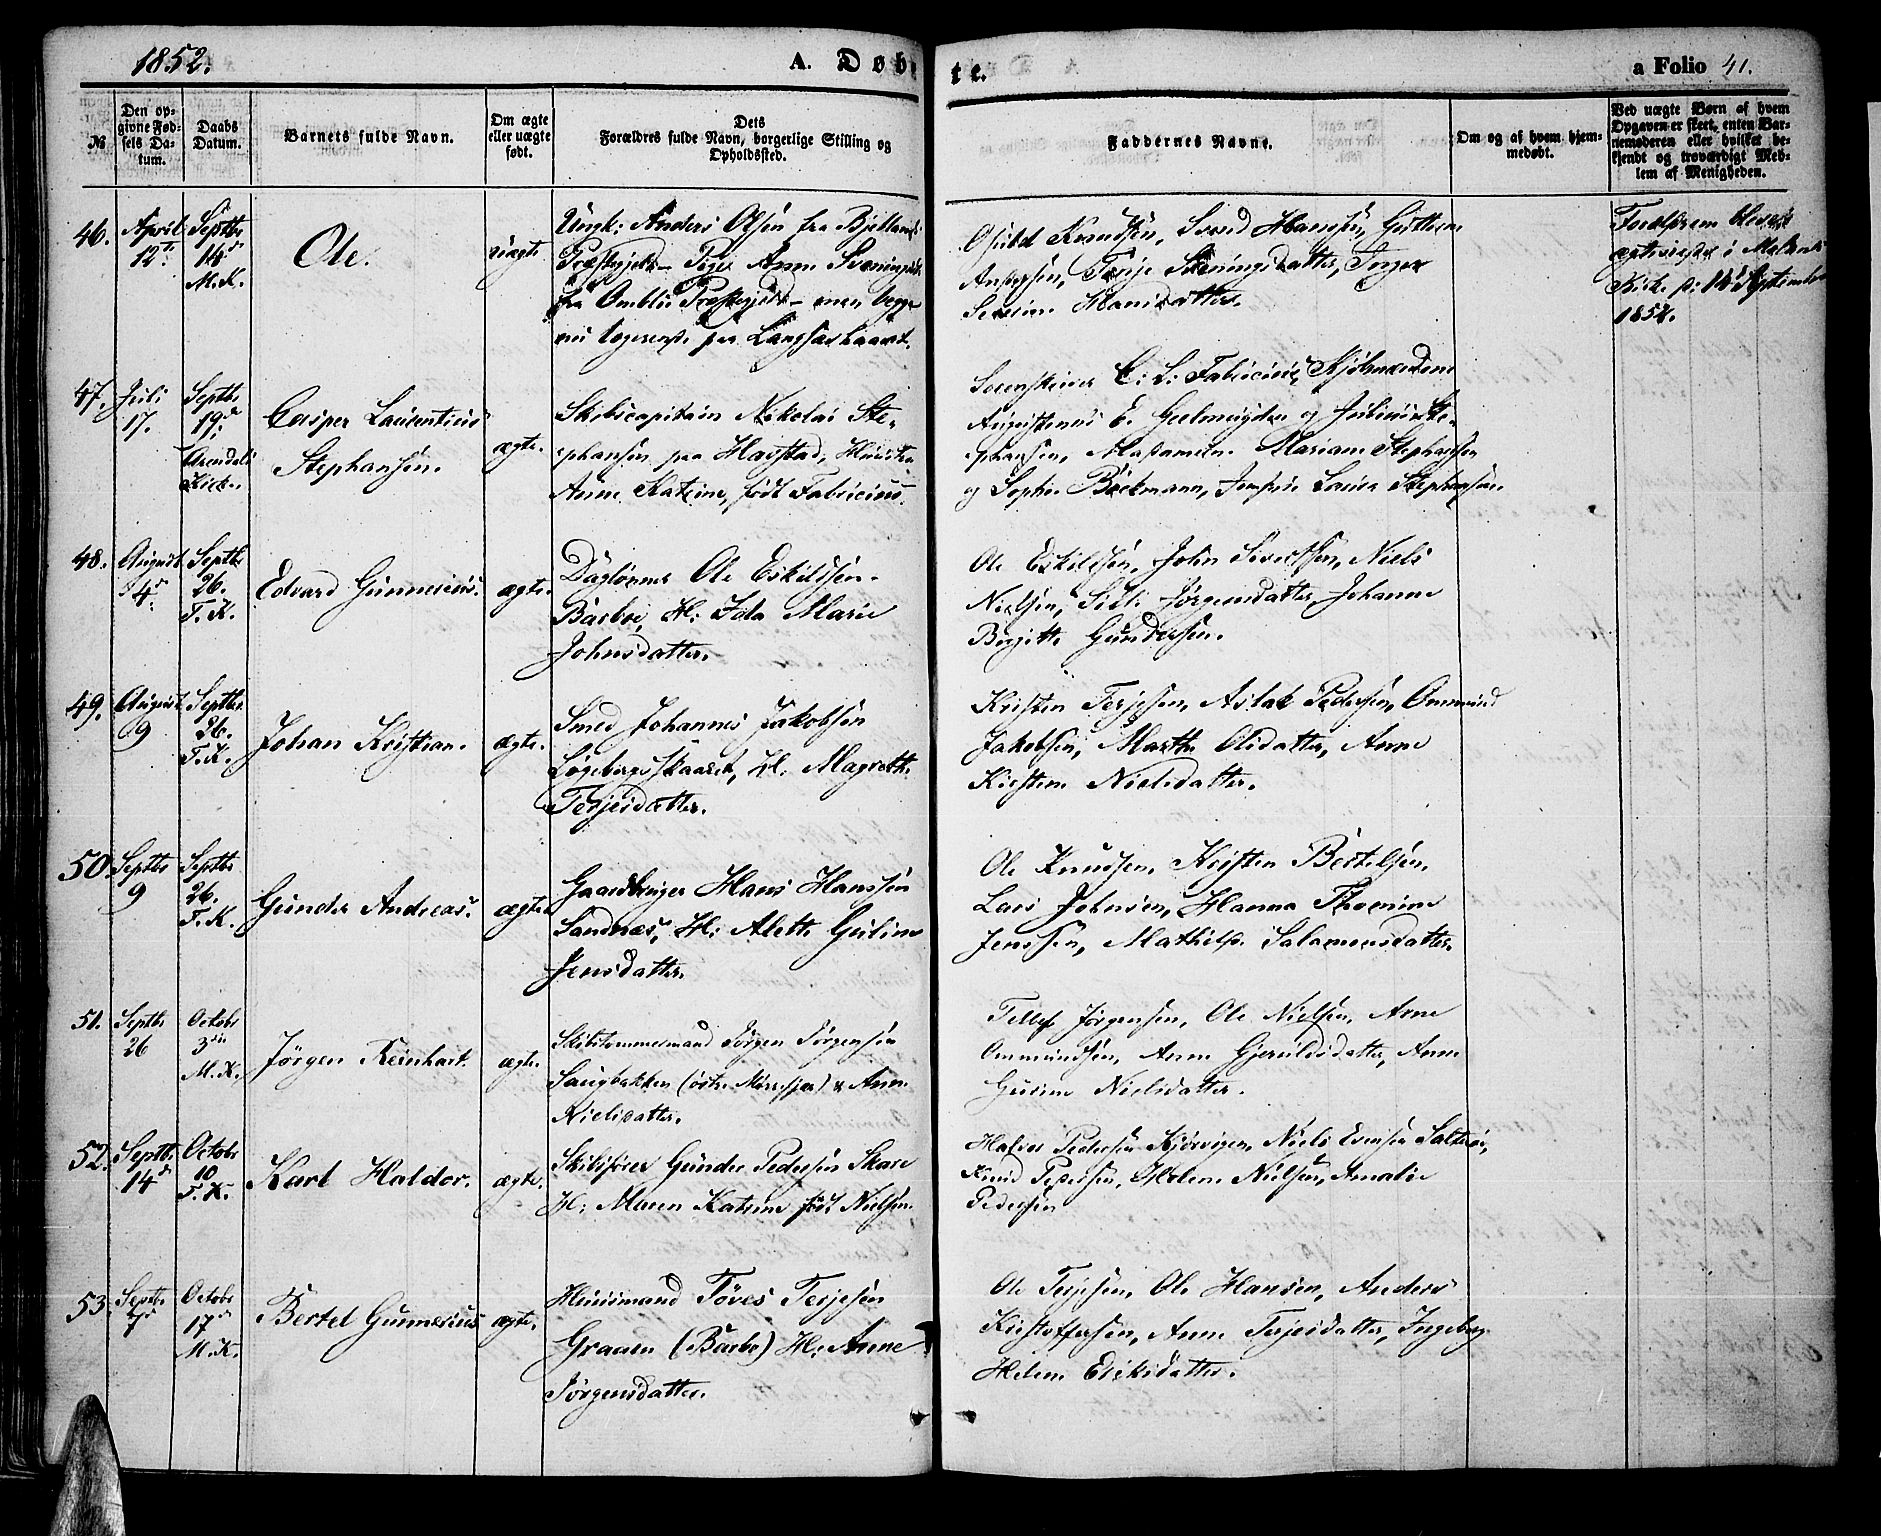 1852.
A. Døb-
te.
a Folio 41.
№
Den op-
givne Fød-
sels Da-
tum.
Daabs
Datum.
Barnets fulde Navn.
Om ægte
eller uægte
født.
Dets
Forældres fulde Navn, borgerlige Stilling og
Opholdssted.
Faddernes Navne.
Om og af hvem hjem-
medøbt.
Ved uægte Børn af hvem
Opgaven er skeet, enten Bar-
nemoderen eller hvilket be-
kjendt og troværdigt Med-
lem af Menigheden.
46.
April
12te
Septbr
14d
M. K.
Ole.
uægte
Ungk: Anders Olsen fra Bjelland
Præstegjeld – Pige Anne
fra Omblie Præstegjeld – men begge
nu logerende paa
Knudsen, Hansen,
Andersen, Terje Inger
Hansdatter.
Forældrene bleve
i
Kirke
1852.
47.
Juli
17.
Septbr
19d
Arendals
Kirke.
Casper Laurentius
Stephansen.
ægte.
Skibscapitain Nikolai Ste-
phansen paa Havstad, Hustru
Anne Katrine, født Fabricius.
Sorenskriver C: L: Fabricius, Kjøbmændene
Augustinus E. Geelmuyden og Julius Ste-
phansen, Madamerne Mariane Stephansen
og Sophie Bøckmann, Jomfru Laura Stephansen.
48.
August
4d
Septbr
26.
T. K.
Edvard Gunnerius.
ægte.
Daglønner Ole Eskildsen
Barboe, H: Ida Marie
Johnsdatter.
Ole Eskildsen, John Sivertsen, Niels
Nielsen, Sidli Jørgensdatter, Johanne
Birgitte Gundersen.
49.
August
9
Septbr
26.
T. K.
Johan Kristian.
ægte.
Smed Johannes Jakobsen
Løgebergsskaaret, H: Magrethe
Terjesdatter.
Kristen Terjesen, Aslak Pedersen, Ommund
Jakobsen, Marthe Olsdatter, Anne
Kirstine Nielsdatter.
50.
Septbr
9
Septbr
26.
T. K.
Gunder Andreas.
ægte.
Gaardbruger Hans Hanssen
Sandnæs, H: Alette Guline
Jensdatter.
Ole Knudsen, Kristen Bertelsen,
Lars Johnsen, Hanna Thomine
Jenssen, Mathilde Salamonsdatter.
51.
Septbr
26
Octobr
3die
M. K.
Jörgen Reinhart.
ægte.
Skibstømmermand Jörgen Jörgensen
Saugbakken (östre Mörefjær) & Anne
Nielsdatter.
Tellef Jörgensen, Ole Nielsen, Arne
Ommundsen, Anne Gjeruldsdatter, Anne
Gurine Nielsdatter.
52.
Septbr
14d
Octobr
10
T. K.
Karl Haldor.
ægte.
Skibsfører Gunder Pedersen Skare
H: Maren Katrine født Nielsen.
Halvor Pedersen Kjörvigen, Niels Evensen Salterö,
Knud Pedersen, Helene Nielsen, Amalie
Pedersen
53.
Septbr
7d
Octobr
17d
M. K.
Bertel Gunnerius
ægte.
Huusmand Töves Terjesen
Graaen (Barbo) H: Anne
Jörgensdatter.
Ole Terjesen, Ole Hansen, Anders
Kristoffersen, Anne Terjesdatter, Ingeborg
Helene Eriksdatter.